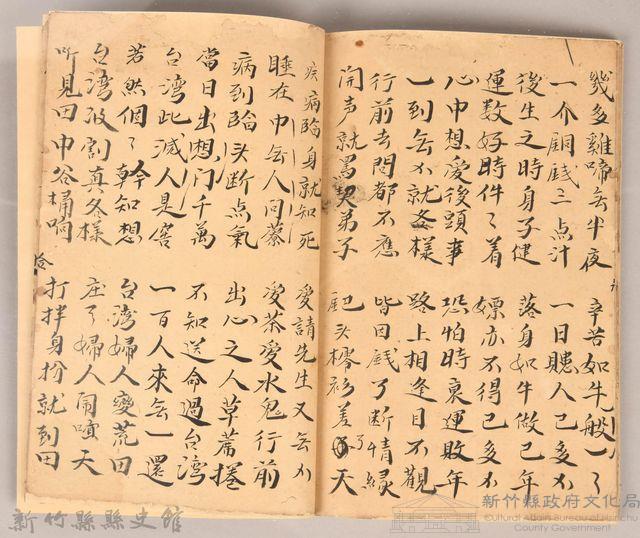 幾多雞啼無半夜 辛苦如牛般一了
一介銅錢三点汁 一日賍人已多
後生之時身子健 落身如牛做已年
運数好時件了着 嫖亦不得已多
心中想愛後頭事 恐怕時衰運敗年
一到無 就各樣 路上相逢目不觀
行前去問都不應 皆因錢了断情緣
開声就罵契弟子 头 衫差了天
疾病臨身就知死 愛請先生又無
睡在巾無人问蔡 愛茶愛水鬼行前
病到臨头断点氣 出心之人草蓆捲
當日出想门千萬 不知送命過台湾
台湾此滅人是窖 一百人來無一還
若然個了幹知想 台湾婦人變荒田
台湾收割真各樣 庄了婦人鬧喧天
听見田中谷桶响 打拌身扮就到田
新竹縣縣史館
新竹縣政府文化局
Cultural Affairs Bureau of Hsinchu
County Government